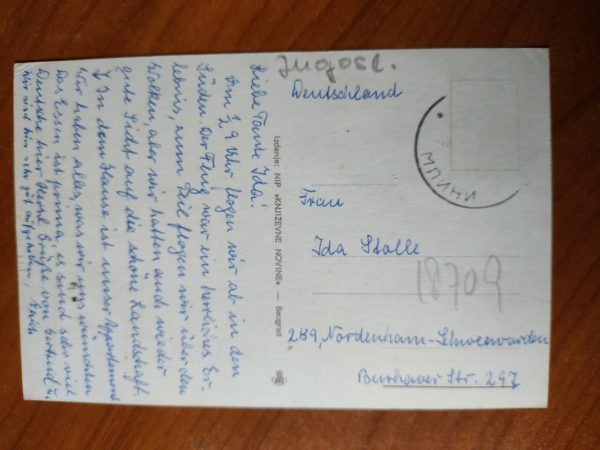 Liebe Tante Ida!
Am 2.9. Uhr flogen wir ab in den
Süden. Der Flug war ein herrliches Er-
lebnis, zum Teil flogen wir über den
Wolken aber wir hatten auch wieder
gute Sicht auf die schöne Landschaft.
In dem Hause ist unser Appartement
Wir haben alles, was wir uns wünschten
Das Essen ist prima, es sind sehr viel
Deutsche hier. Herzl. Grüße von Gertrud u.
Wir sind hier sehr gut aufgehoben, Erich
Izdanje: NIP »KNJIŽEVNE NOVINE« — Beograd
Jugosl.
Deutschland
МЛИНИ
Frau
Ida Stolle
18709
289, Nordenham-Schweewarden
Burhaver Str. 297